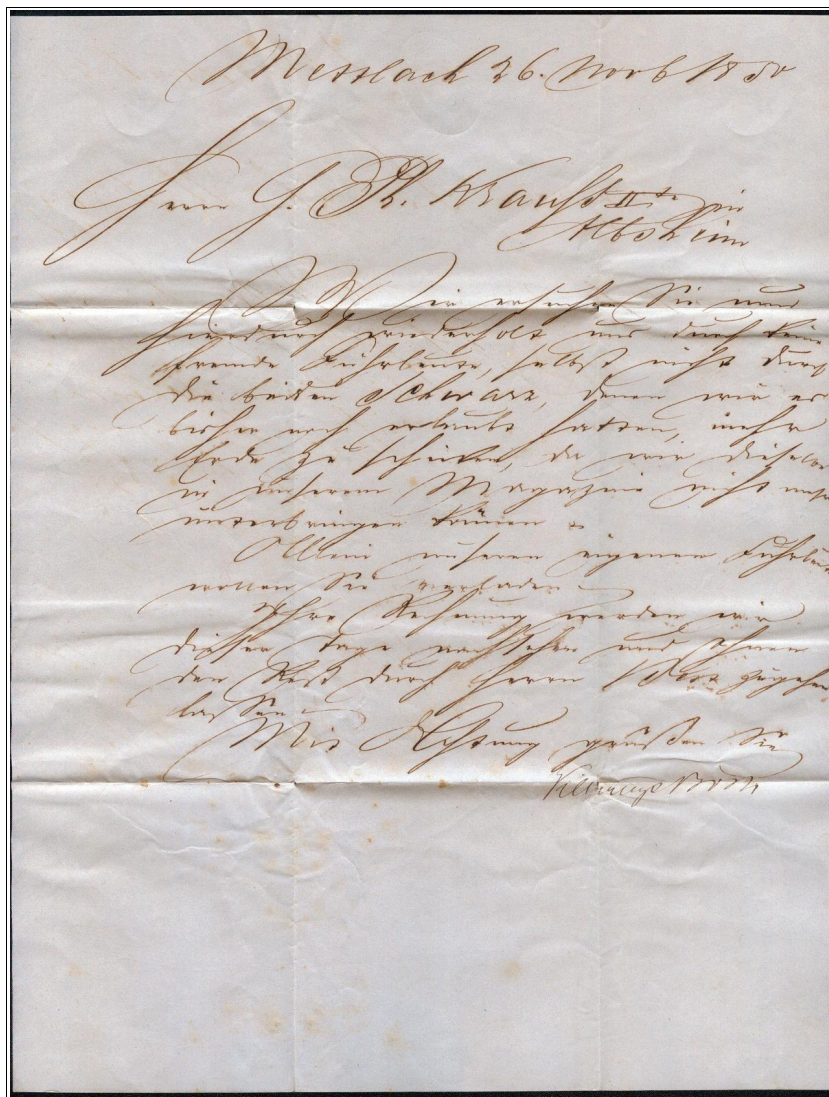 Mettlach 26. Novb 1850
Herrn J. Ph. Krauss IIte in
Albsheim
Wir ersuchen Sie nun
hierdurch wiederholt uns durch keine
fremde Fuhrleute, selbst nicht durch
die beiden Schwarz, denen wir es
bisher noch erlaubt hatten, mehr
Erde zu schicken, da wir dieselbe
in unserem Magazine nicht mehr
unterbringen können
Allein unseren eigenen Fuhrleuten
wollen Sie verladen
Ihre Rechnung werden wir
dieser Tage nachsehen und Ihnen
den Rest durch Herrn zugehen
lassen
Mit Achtung grüßen Sie